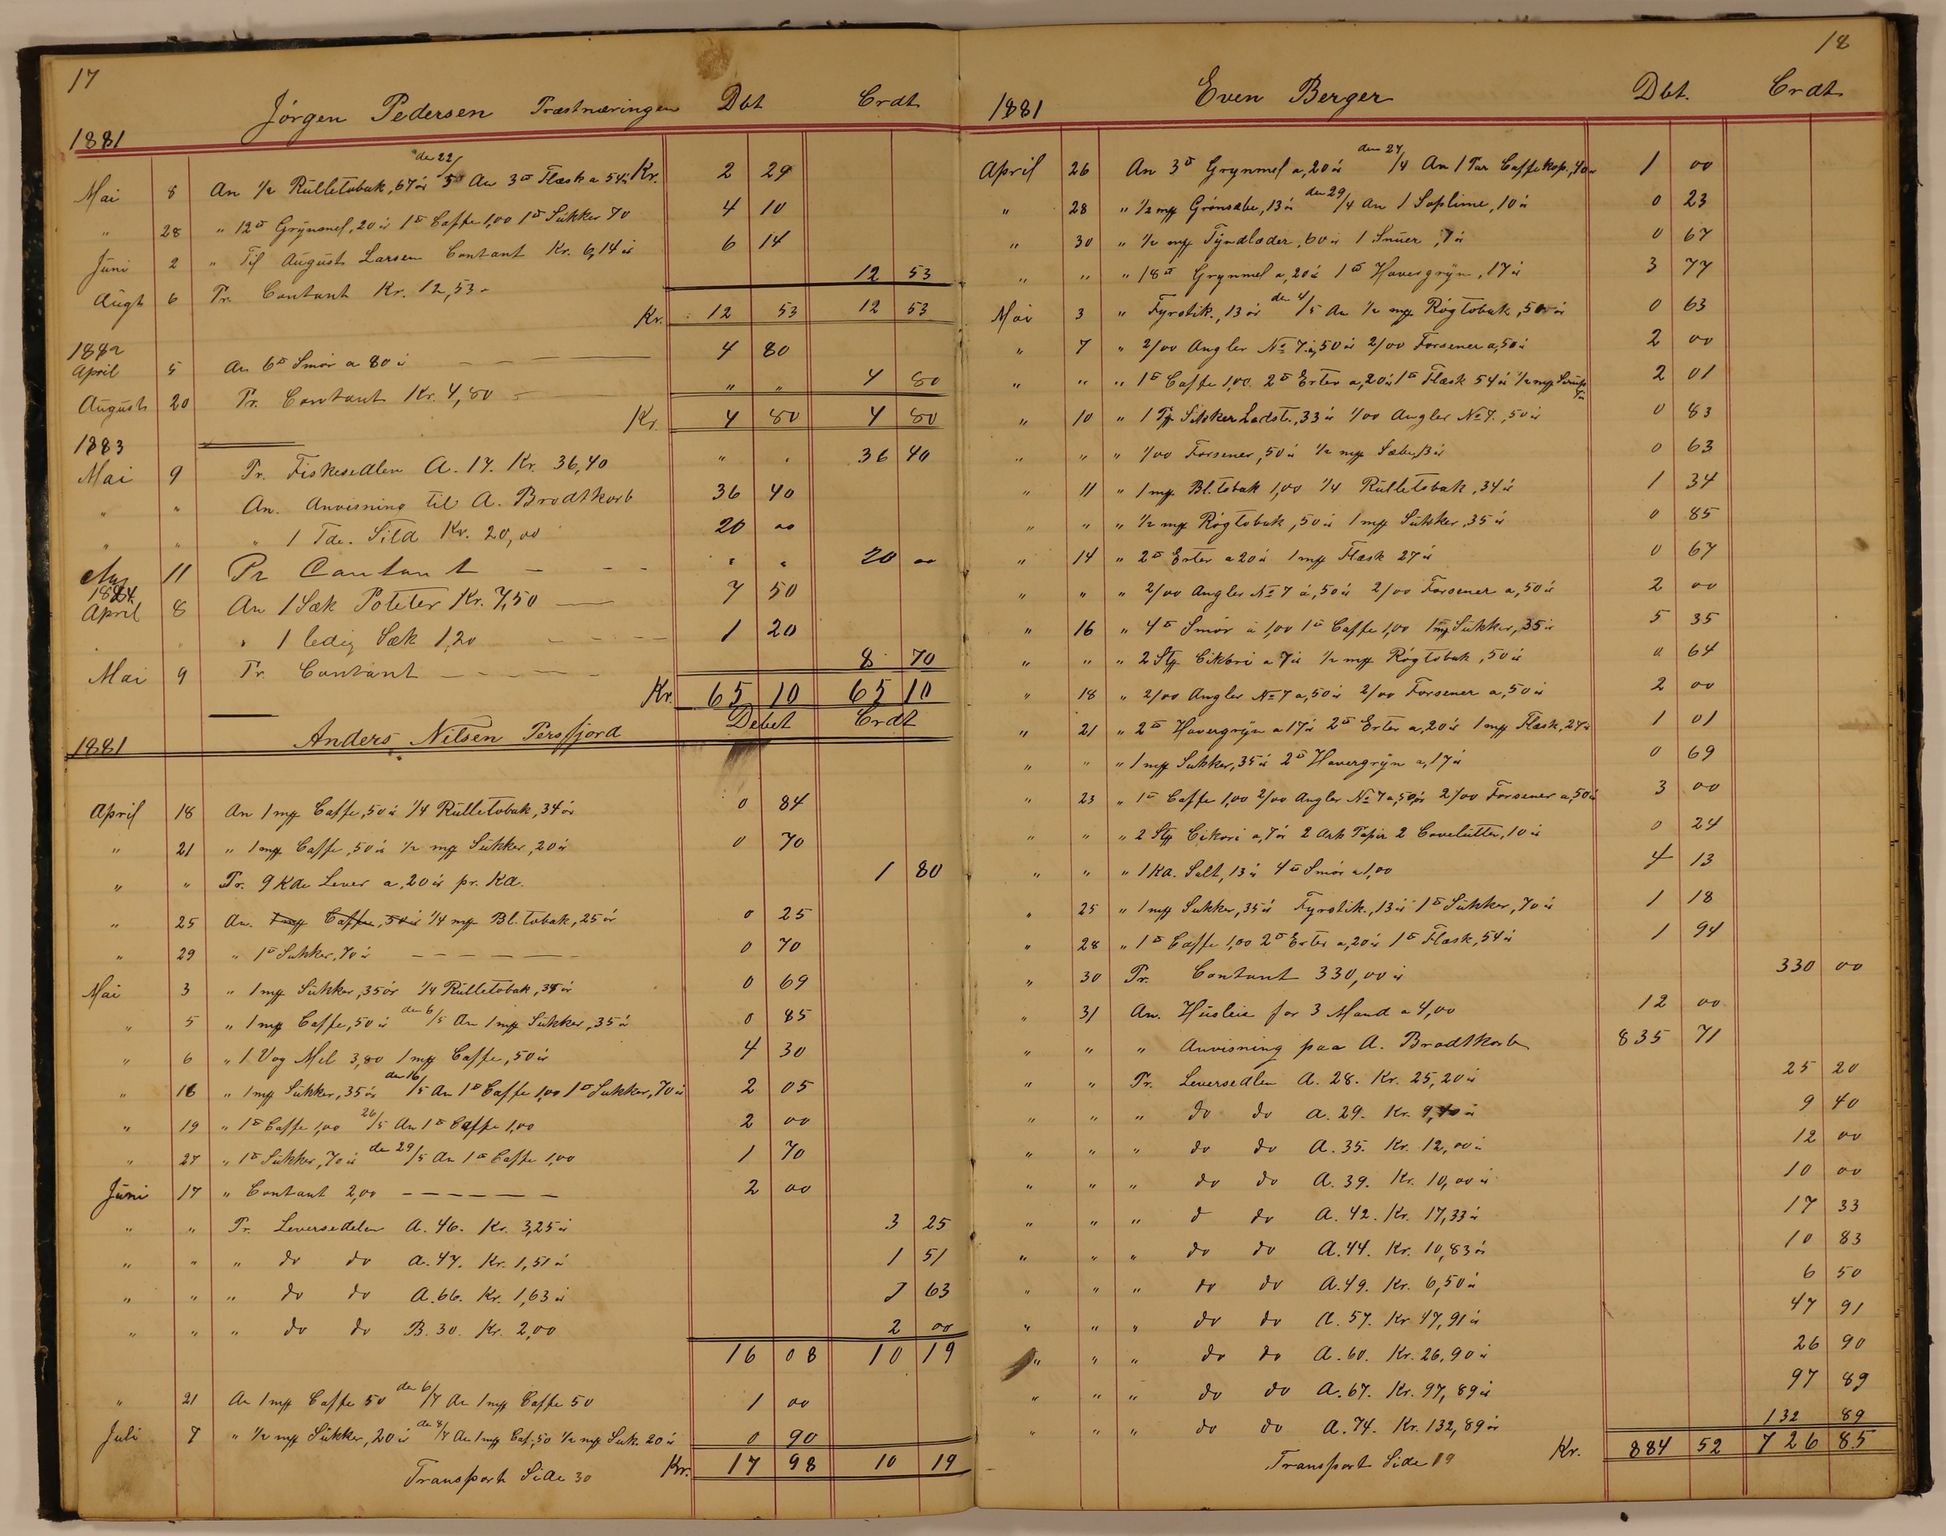 17
Jörgen Pedersen Præstnæringen Dbt Crdt
1881
Mai 8 An 1/2 Rulletobak, 67 ör den 22/5 An 3 ℔ Flæsk a 54 ör Kr. 2 29
" 28 " 12 ℔ Grynmel, 20 ör 1 ℔ Caffe 1,00 1 ℔ Sukker 70 4 10
Juni 2 " Til August Larsen Contant Kr. 6,14 ör 6 14
Augt 6 Pr. Contant Kr. 12,53 - 12 53
Kr. 12 53 12 53
1882
April 5 An 6 ℔ Smör a 80 ör 4 80
August 20 Pr. Contant Kr. 4,80 " " 4 80
Kr. 4 80 4 80
1883
Mai 9 Pr. Fiskesedlen A. 17. Kr. 36,40 " " 36 40
" " An. Anvisning til A. Brodtkorb 36 40
" " " 1 Tde. Sild Kr. 20,00 20 00
Aug 11 Pr Contant " " 20 00
1884
April 8 An 1 Sæk Poteter Kr. 7,50 7 50
" " " 1 ledig Sæk 1,20 1 20
Mai 9 Pr. Contant 8 70
Kr. 65 10 65 10
1881 Anders Nilsen Persfjord Debet Crdt
April 18 An 1 mrk Caffe, 50 ör 1/4 Rulletobak, 34 ör 0 84
" 21 " 1 mrk Caffe, 50 ör 1/2 mrk Sukker, 20 ör 0 70
" " Pr. 9 Kde Lever a, 20 ör pr. Kd. 1 80
" 25 An. 1 mrk Caffe, 50 ör 1/4 mrk Bl. tobak, 25 ör 0 25
" 29 " 1 ℔ Sukker, 70 ör 0 70
Mai 3 " 1 mrk Sukker, 35 ör 1/4 Rulletobak, 34 ör 0 69
" 5 " 1 mrk Caffe, 50 ör den 6/5 An 1 mrk Sukker, 35 ör 0 85
" 6 " 1 Vog Mel 3,80 1 mrk Caffe, 50 ör 4 30
" 16 " 1 mrk Sukker, 35 ör den 16/5 An 1 ℔ Caffe 1,00 1 ℔ Sukker, 70 ör 2 05
" 19 " 1 ℔ Caffe 1,00 26/5 An 1 ℔ Caffe 1,00 2 00
" 27 " 1 ℔ Sukker, 70 ör den 29/5 An 1 ℔ Caffe 1,00 1 70
Juni 17 " Contant 2,00 2 00
" " Pr. Leversedelen A. 46. Kr. 3,25 ör 3 25
" " " do do A. 47. Kr. 1,51 ör 1 51
" " " do do A. 66. Kr. 1,63 ör 1 63
" " " do do B. 30. Kr. 2,00 2 00
16 08 10 19
" 21 An 1 mrk Caffe 50 den 6/7 An 1 mrk Caffe 50 1 00
Juli 7 " 1/2 mrk Sukker, 20 ör den 8/7 An 1 mrk Caf. 50 1/2 mrk Suk. 20 ör 0 90
Transport Side 30 Kr. 17 98 10 19
18
1881 Even Berger Dbt. Crdt
April 26 An 3 ℔ Grynmel a, 20 ör den 27/4 An 1 Par Caffekop, 40 ör 1 00
" 28 " 1/2 mrk Grönsæbe, 13 ör den 29/4 An 1 Soplime, 10 ör 0 23
" 30 " 1/2 mrk Tyndlæder, 60 ör 1 Snuer, 7 ör 0 67
" " " 18 ℔ Grynmel a, 20 ör 1 ℔ Havergryn, 17 ör 3 77
Mai 3 " Fyrstik., 13 ör den 4/5 An 1/2 mrk Rögtobak, 50 ör 0 63
" 7 " 2/00 Angler No 7 a, 50 ör 2/00 Forsener a, 50 ör 2 00
" " " 1 ℔ Caffe 1,00 2 ℔ Erter a, 20 ör 1 ℔ Flæsk 54 ör 1/2 mrk 2 01
" 10 " 1 Sukker, 33 ör 1/00 Angler No 7., 50 ör 0 83
" " " 1/00 Forsener, 50 ör 1/2 mrk Sæbe, 13 ör 0 63
" 11 " 1 mrk Bl. tobak 1,00 1/4 Rulletobak, 34 ör 1 34
" " " 1/2 mrk Rögtobak, 50 ör 1 mrk Sukker, 35 ör 0 85
" 14 " 2 ℔ Erter a 20 ör 1 mrk Flæsk 27 ör 0 67
" " " 2/00 Angler No 7 a, 50 ör 2/00 Forsener a, 50 ör 2 00
" 16 " 4 ℔ Smör a 1,00 1 ℔ Caffe 1,00 1 mrk Sukker, 35 ör 5 35
" " " 2 Stg Cikori a 7 ör 1/2 mrk Rögtobak, 50 ör 0 64
" 18 " 2/00 Angler No 7 a, 50 ör 2/00 Forsener a, 50 ör 2 00
" 21 " 2 ℔ Havergryn a 17 ör 2 ℔ Erter a, 20 ör 1 mrk Flæsk, 27 ör 1 01
" " " 1 mrk Sukker, 35 ör 2 ℔ Havergryn a, 17 ör 0 69
" 23 " 1 ℔ Caffe 1,00 2/00 Angler No 7 a, 50 ör 2/00 Forsener a, 50 ör 3 00
" " " 2 Stg Cikori a, 7 ör 2 Ark Papir 2 Covelutter, 10 ör 0 24
" " " 1 Kd. Salt, 13 ör 4 ℔ Smör a 1,00 4 13
" 25 " 1 mrk Sukker, 35 ör Fyrstik., 13 ör 1 ℔ Sukker, 70 ör 1 18
" 28 " 1 ℔ Caffe 1,00 2 ℔ Erter a, 20 ör 1 ℔ Flæsk, 54 ör 1 94
" 30 Pr. Contant 330,00 ör 330 00
" 31 An. Husleie for 3 Mand a 4,00 12 00
" " " Anvisning paa A. Brodtkorb 835 71
" " Pr. Leversedlen A. 28. Kr. 25,20 ör 25 20
" " " do do A. 29. Kr. 9,40 ör 9 40
" " " do do A. 35. Kr. 12,00 ör 12 00
" " " do do A. 39. Kr. 10,00 ör 10 00
" " " d do A. 42. Kr. 17,33 ör 17 33
" " " do do A. 44. Kr. 10,83 ör 10 83
" " " do do A. 49. Kr. 6,50 ör 6 50
" " " do do A. 57. Kr 47,91 ör 47 91
" " " do do A. 60. Kr. 26,90 ör 26 90
" " " do do A. 67. Kr. 97,89 ör 97 89
" " " do do A. 74. Kr. 132,89 ör 132 89
Transport Side 19 Kr. 884 52 726 85